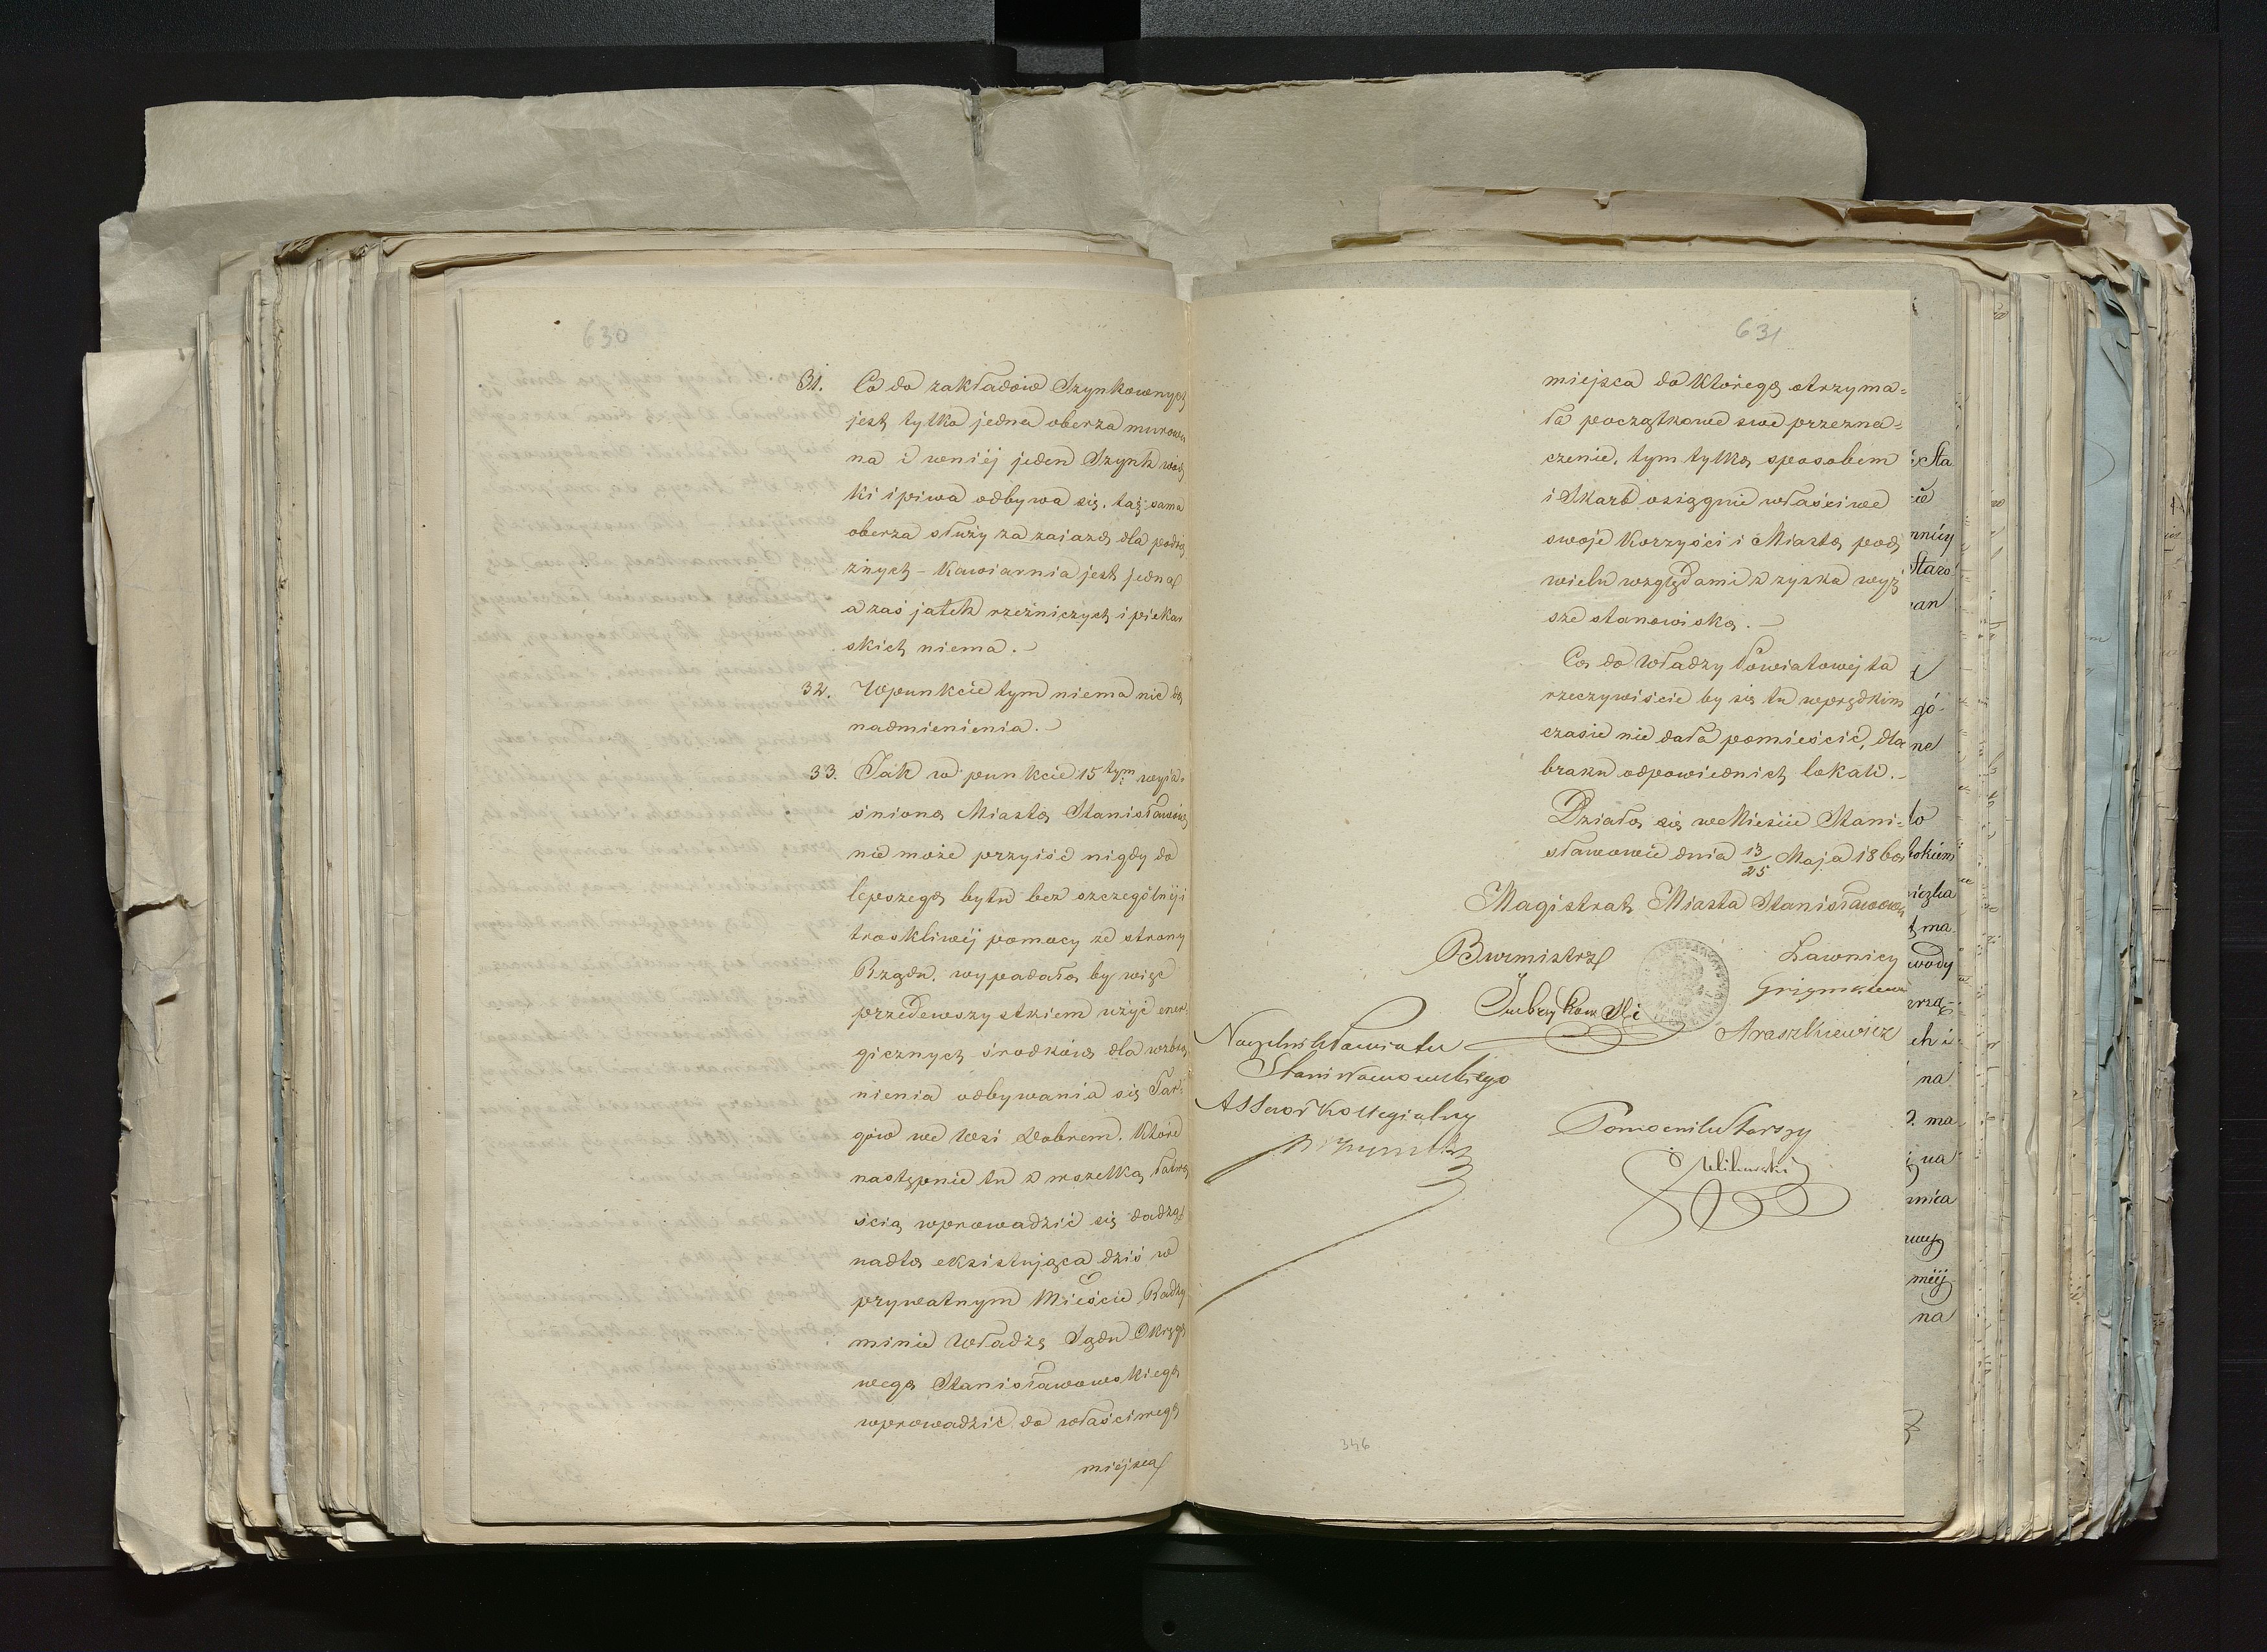 630
31. Co do zakładów Szynkownych
jest tylko jedna oberza murowa
na i wniéj jeden Szynk wód
ki i piwa odbywa się, taż sama
oberza służy za zajazd dla podró
żnych – Kawiarnia jest jedna
a zaś jatek rzeźniczych i piekar
skich niema. –
32. W punkcie tym niema nic do
nadmienienia. –
33. Jak w punkcie 15tym wyja-
śniono Miasto Stanisławów
nie może przyiść nigdy do
lepszego bytu bez szczególnéj
troskliwéj pomocy ze strony
Rządu. wypadało by więc
przedewszystkiem użyć ener
gicznych środków dla wzbro
nienia odbywania się Tar-
gów we Wsi Dobrem. które
następnie tu z wszelką łatwo
ścią wprowadzić się dadzą
nadto eksistująca dziś w
prywatnym Mieście Radzy
minie Władzę Sądu Okręgo
wego Stanisławowskiego
wprowadzić do właściwego
miejsca
631
miejsca do którego otrzyma-
ła początkowe swe przezna-
czenie, tym tylko sposobem
i Skarb osiągnie właściwe
swoje korzyści i Miasto pod
wielu względami zyska wyż
sze stanowisko. –
Co do Władzy Powiatowej ta
rzeczywiście by się tu wprędkim
czasie nie dała pomieścić, dla
braku odpowiednich lokali. –
Działo się w Mieście Stani-
sławowie dnia 13/25 Maja 1860
Magistrat Miasta Stanisławowa
Burmistrz
Ławnicy
Araszkiewicz
Naczelnik Powiatu
Stanisławowskiego
Assesor Kollegialny
Pomocnik Starszy
346